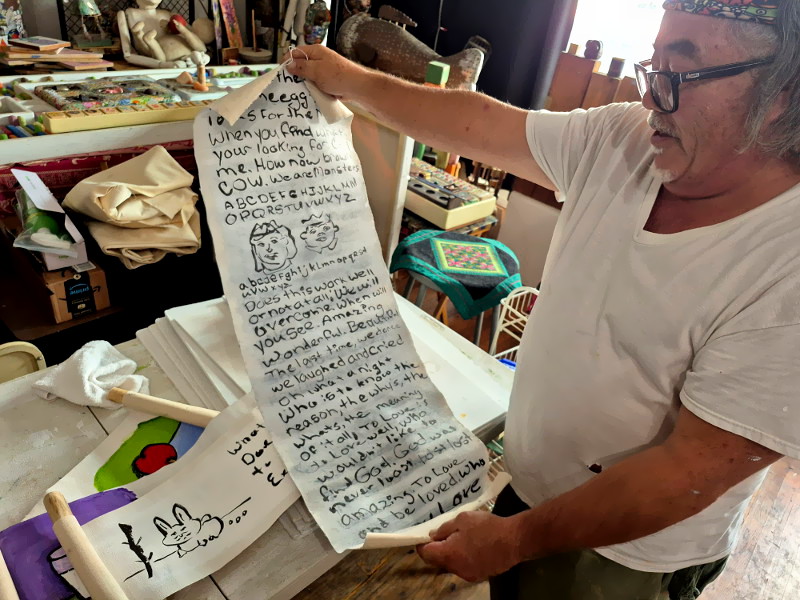 the
egg
for the
When you find what
your looking for
me. How now brow
COW. We are Monsters
ABCDEFGHIJKLMN
OPQRSTUVWXYZ
abcdefghijklmnopqrst
uvwxyz
Does this work well
or not at all, we will
overcome. When will
you see. Amazing
Wonderful. Beautiful
The last time, we
we laughed and cried
Oh, what a night
Who is to know the
reason, the whys, the
whats, the meaning,
of it all, To Love,
is Love well, who
wouldn't like to
find God, God was
never lost, to be lost
amazing To Love
and be loved. Who
Love
What
Doe
to